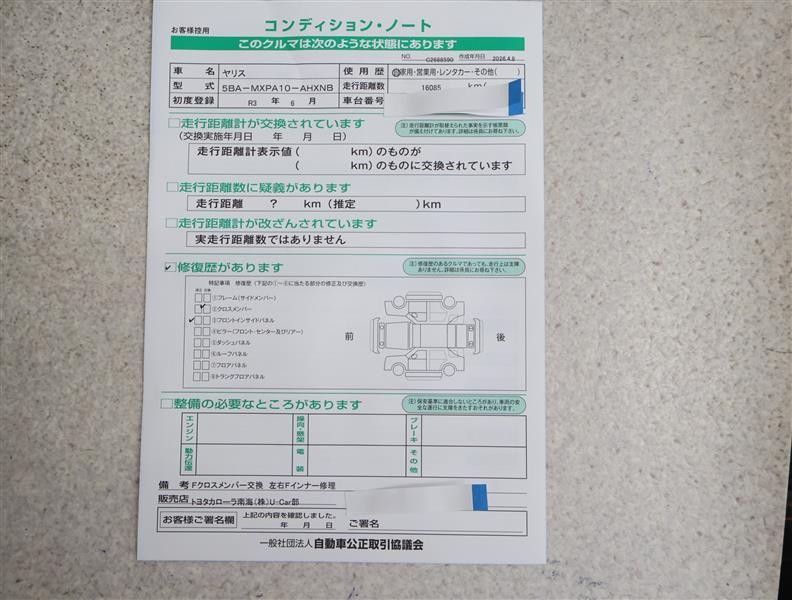 お客様控用
コンディション・ノート
このクルマは次のような状態にあります
NO. C2688590 作成年月日 2026.4.8
車名 ヤリス 使用歴 自家用・営業用・レンタカー・その他( )
型式 5BA-MXPA10-AHXNB 走行距離数 16085 km(
初度登録 R3 年 6 月 車台番号
走行距離計が交換されています
(交換実施年月日 年 月 日)
注)走行距離計が取替えられた事実を示す帳票類
が備え付けてあります。詳細は係員にお尋ね下さい。
走行距離計表示値( km)のものが
( km)のものに交換されています
走行距離数に疑義があります
走行距離 ? km(推定 )km
走行距離計が改ざんされています
実走行距離数ではありません
修復歴があります
注)修復歴のあるクルマであっても、走行上は支障
ありません。詳細は係員にお尋ね下さい。
特記事項 修復歴(下記の①~⑧に当たる部分の修正及び交換歴)
修正 交換
①フレーム(サイドメンバー)
②クロスメンバー
③フロントインサイドパネル
④ピラー(フロント・センター及びリアー)
⑤ダッシュパネル
⑥ルーフパネル
⑦フロアパネル
⑧トランクフロアパネル
前
後
整備の必要なところがあります
注)保安基準に適合しないところがあり、車両の安
全な運行に支障をきたすおそれがあります。
エンジン 操向・懸架 ブレーキ
動力伝達 電装 その他
備考 Fクロスメンバー交換 左右Fインナー修理
販売店 トヨタカローラ南海(株)U-Car部
お客様ご署名欄 上記の内容を確認しました。
年 月 日 ご署名
一般社団法人 自動車公正取引協議会